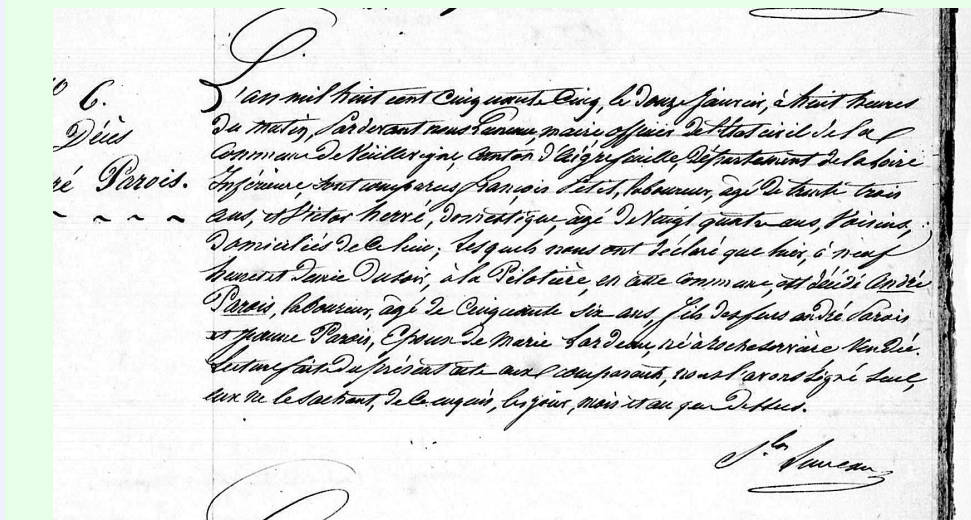 6.
Décès
ré Parois.
L'an mil huit cent cinquante cinq, le douze Janvier, à huit heures
du matin, Pardevant nous maire officier de l'état civil de la
commune de Vieillevigne, canton d'Aigrefeuille, Département de la Loire
Inférieure sont comparus françois Petit, laboureur, âgé de trente trois
ans, et Victor hervé, domestique, âgé de Vingt quatre ans, Voisins,
domiciliés de ce lieu; lesquels nous ont déclaré que hier, à neuf
heures et demie du soir, à la Pelotière, en cette commune, est décédé André
Parois, laboureur, âgé de Cinquante six ans, fils des feus andré Parois
et jeanne Parois, Epoux de Marie né à rocheservière Vendée.
Lecture faite du présent acte aux comparants, nous l'avons signé seul,
eux ne le sachant, de ce enquis, les jour, mois et an que dessus.